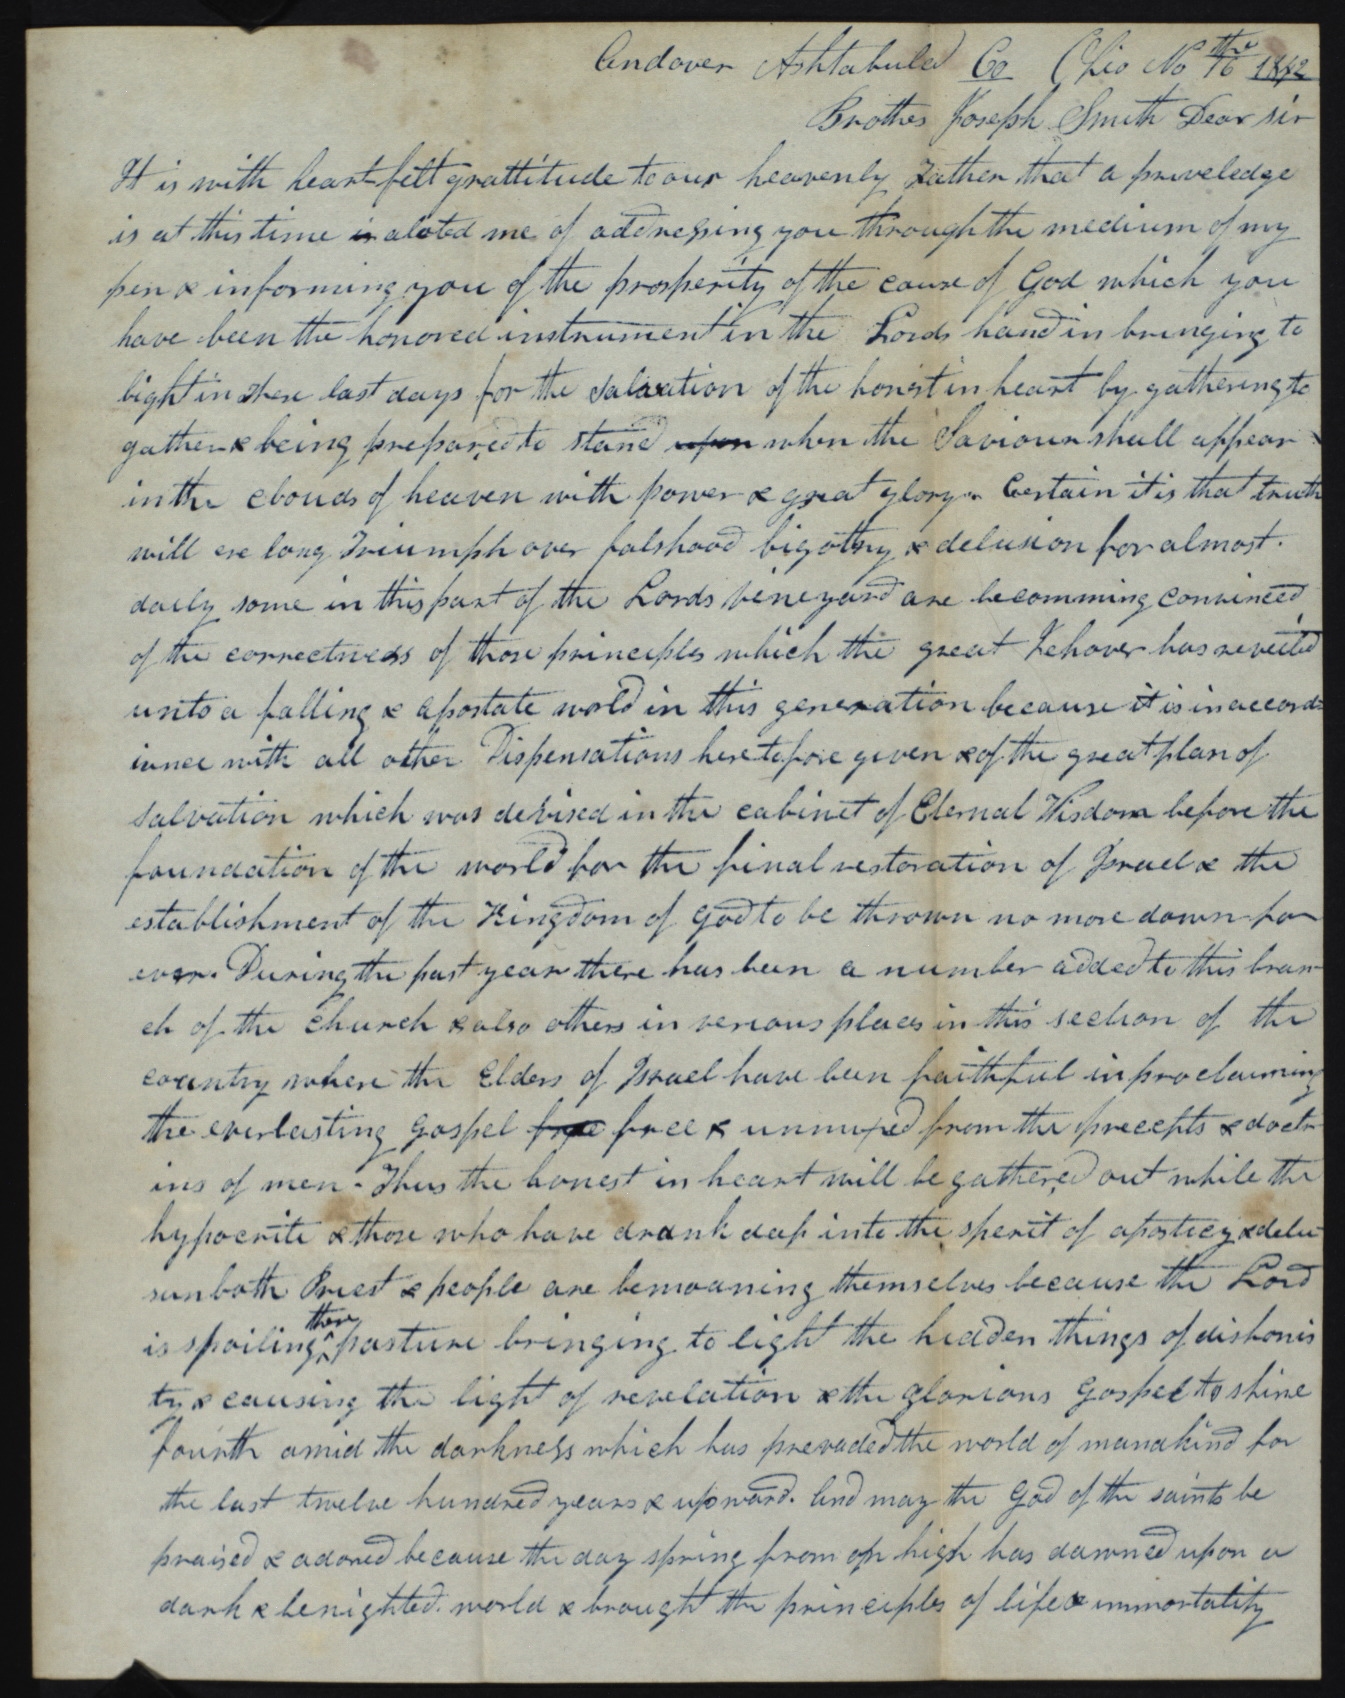 Andover Ashtabula Co Ohio No 16the 1842
Brother Joseph Smith Dear sir
It is with heart felt grattitude to our heavenly Father that a priveledge
is at this time is aloted me of addressing you through the medium of my
pen & informing you of the prosperity of the cause of God which you
have been the honored instrument in the Lords hand in bringing to
light in these last days for the salvation of the honest in heart by gathering to
gather & being prepared to stand upon when the Saviour shall appear
in the clouds of heaven with power & great glory. Certain it is that truth
will ere long Triumph over falshood bigotry & delusion for almost
daily some in this part of the Lords vineyard are becomming convinced
of the correctness of those principles which the great Jehover has reveiled
unto a falling & apostate world in this generation because it is in accord=
ince with all other Dispensations heretofore given & of the great plan of
salvation which was devised in the cabinet of Eternal Wisdom before the
foundation of the world for the final restoration of Israel & the
establishment of the Kingdom of God to be thrown no more down for
ever. During the past year there has been a number added to this bran-
ch of the church & also others in verious places in this section of the
country where the Elders of Israel have been faithful in proclaiming
the everlasting gospel free free & unmixed from the precepts & doctr-
ins of men. Thus the honest in heart will be gathered out while the
hypocrite & those who have drank deep into the sperit of aposticy & delu-
sun both Priest & people are bemoaning themselves because the Lord
is spoiling ther pasture bringing to light the hidden things of dishonis
ty & causing the light of revelation & the glorious Gospel to shine
fourth amid the darkness which has prevaded the world of manakind for
the last twelve hundred years & upward. And may the God of the saints be
praised & adored because the day spring from on high has dawned upon a
dark & benighted world & brought the principles of life & immortality